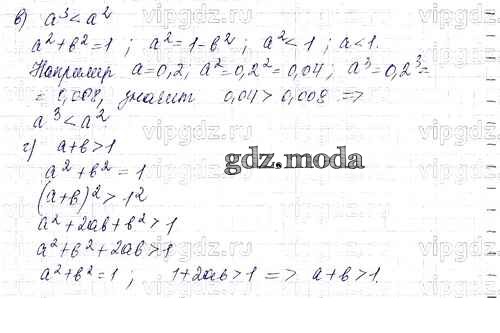 в) a³ < a²
a² + b² = 1 ; a² = 1 - b² ; a² < 1 ; a < 1.
Например a = 0,2; a² = 0,2² = 0,04; a³ = 0,2³ =
= 0,008, значит 0,04 > 0,008 =>
a³ < a²
г) a + b > 1
a² + b² = 1
(a + b)² > 1²
a² + 2ab + b² > 1
a² + b² + 2ab > 1
a² + b² = 1 ; 1 + 2ab > 1 => a + b > 1.
gdz.moda
vipgdz.ru